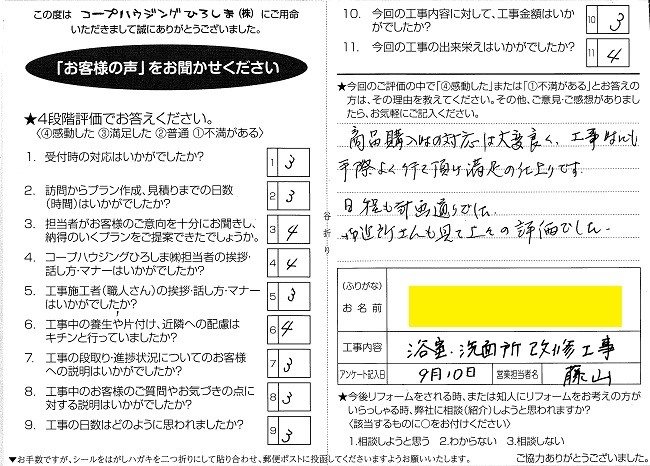 この度は コープハウジングひろしま(株) にご用命
いただきまして誠にありがとうございました。
「お客様の声」をお聞かせください
★4段階評価でお答えください。
〈④感動した ③満足した ②普通 ①不満がある〉
1. 受付時の対応はいかがでしたか?
1 3
2. 訪問からプラン作成、見積りまでの日数
(時間)はいかがでしたか?
2 3
3. 担当者がお客様のご意向を十分にお聞きし、
納得のいくプランをご提案できたでしょうか。
3 4
4. コープハウジングひろしま㈱担当者の挨拶・
話し方・マナーはいかがでしたか?
4 4
5. 工事施工者(職人さん)の挨拶・話し方・マナー
はいかがでしたか?
5 3
6. 工事中の養生や片付け、近隣への配慮は
キチンと行っていましたか?
6 4
7. 工事の段取り・進捗状況についてのお客様
への説明はいかがでしたか?
7 3
8. 工事中のお客様のご質問やお気づきの点に
対する説明はいかがでしたか?
8 3
9. 工事の日数はどのように思われましたか?
9 3
▼お手数ですが、シールをはがしハガキを二つ折りにして貼り合わせ、郵便ポストに投函してくださいますようお願いいたします。
谷折り
10. 今回の工事内容に対して、工事金額はいか
がでしたか?
10 3
11. 今回の工事の出来栄えはいかがでしたか?
11 4
★今回のご評価の中で「④感動した」または「①不満がある」とお答えの
方は、その理由を教えてください。その他、ご意見・ご感想がありました
ら、お気軽にご記入ください。
商品購入時の対応は大変良く、工事
手際よく行て頂け満足の仕上りです。
日程も計画通りでした。
御近所さんも見て上々の評価でした。
(ふりがな)
お名前
工事内容 浴室・洗面所 改修工事
アンケート記入日 9月10日 営業担当者名 藤山
★今後リフォームをされる時、または知人にリフォームをお考えの方が
いらっしゃる時、弊社に相談(紹介)しようと思われますか?
〈該当するものに○をお付けください〉
1.相談しようと思う 2.わからない 3.相談しない
ご協力ありがとうございました。